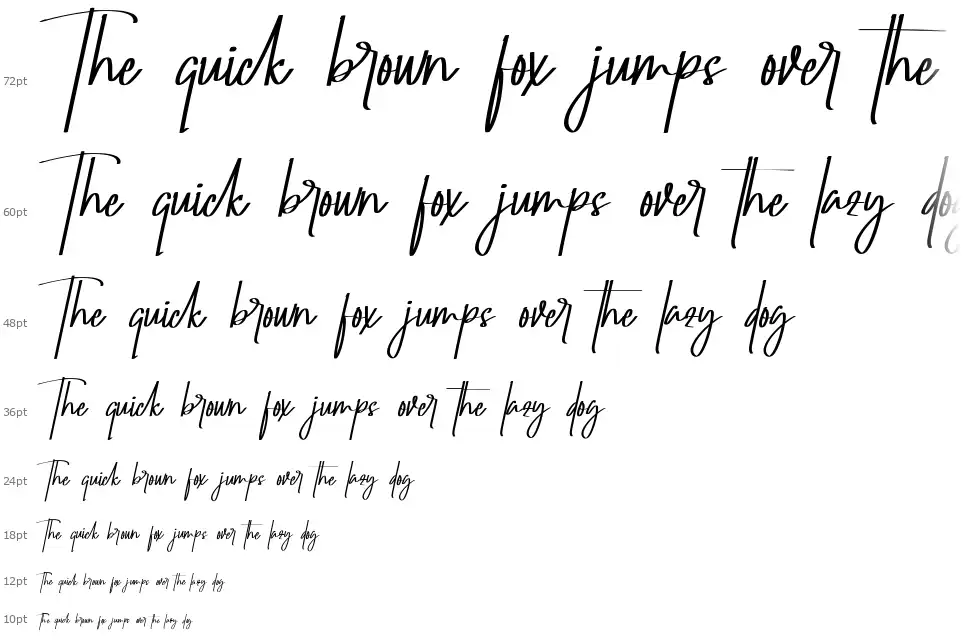 72pt The quick brown fox jumps over the
60pt The quick brown fox jumps over the lazy dog
48pt The quick brown fox jumps over the lazy dog
36pt The quick brown fox jumps over the lazy dog
24pt The quick brown fox jumps over the lazy dog
18pt The quick brown fox jumps over the lazy dog
12pt The quick brown fox jumps over the lazy dog
10pt The quick brown fox jumps over the lazy dog